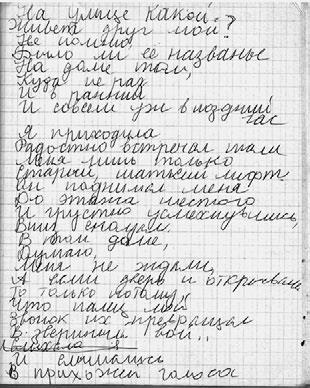 На улице какой
Живёт друг мой?
Не помню,
Было ли её названье
На доме том,
Куда не раз
И в ранний
И совсем уж в поздний
час
Я приходила
Радостно встречал там
Меня лишь только
Старый, шаткий лифт.
Он поднимал меня
До этажа шестого
И грустно усмехнувшись,
Вниз
В том доме,
Думаю,
Меня не ждали,
А если дверь и открывали
То только потому,
Что палец мой
Звонок их превращал
В звериный вой..
я
И слышались
В прихожей голоса